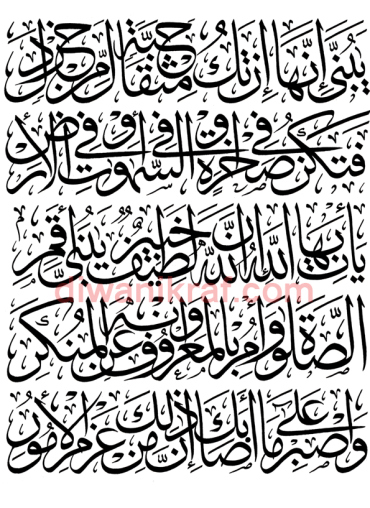 يٰبُنَيَّ إِنَّهَا إِن تَكُ مِثْقَالَ حَبَّةٍ مِّنْ خَرْدَلٍ
فَتَكُن فِي صَخْرَةٍ أَوْ فِي السَّمٰوٰتِ أَوْ فِي الْأَرْضِ
يَأْتِ بِهَا اللَّهُ إِنَّ اللَّهَ لَطِيفٌ خَبِيرٌ يٰبُنَيَّ أَقِمِ
diwanikraf.com
الصَّلٰوةَ وَأْمُرْ بِالْمَعْرُوفِ وَانْهَ عَنِ الْمُنكَرِ
وَاصْبِرْ عَلَىٰ مَا أَصَابَكَ إِنَّ ذٰلِكَ مِنْ عَزْمِ الْأُمُورِ